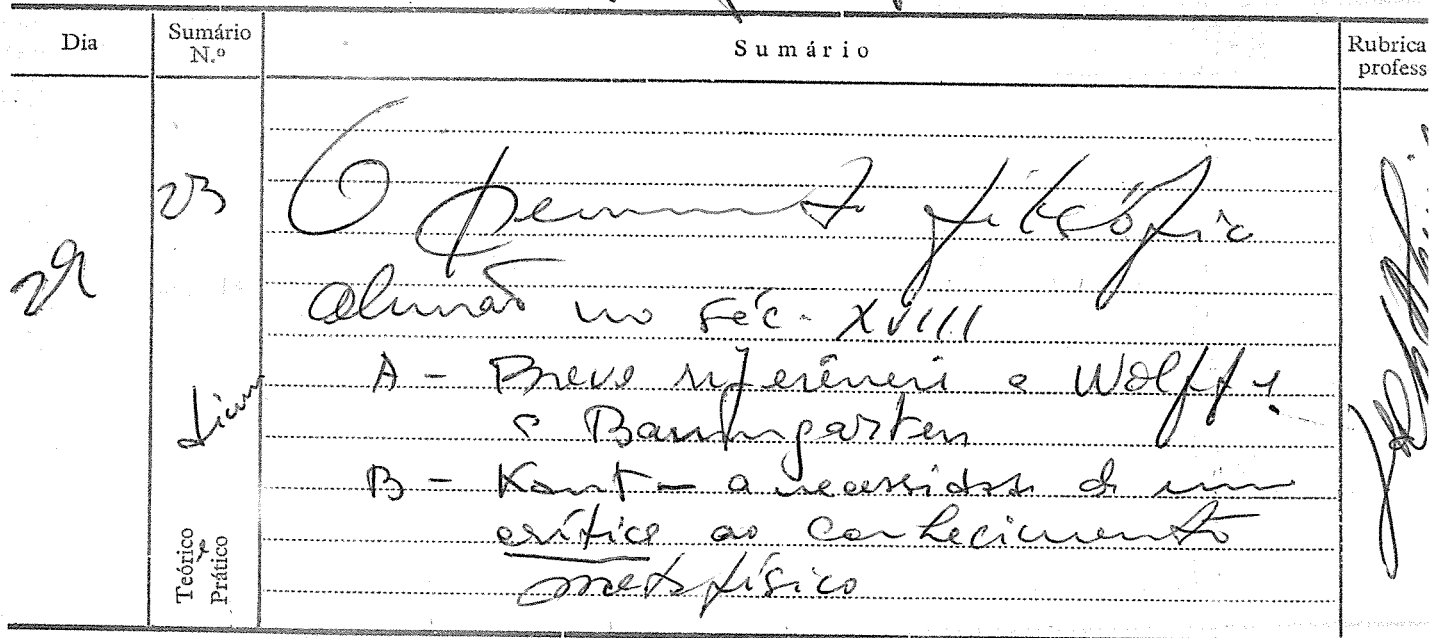 Dia Sumário N.º Sumário Rubrica profess
29 23 O pensamento filosófico
alemão no séc. XVIII
A - Breve referência a Wolff e
a Baumgarten
B - Kant - a necessidade de uma
crítica ao conhecimento
metafísico
Teórico
Prático